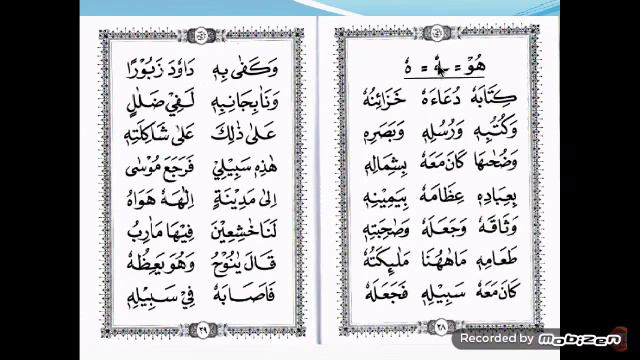 هُوْ = هٗ = هٗ
كِتَابَهٗ دُعَاءَهٗ خَزَائِنُهٗ
وَكُتُبِهٖ وَرُسُلِهٖ وَبَصَرِهٖ
وَضُحٰىهَا كَانَ مَعَهٗ بِشِمَالِهٖ
بِعِبَادِهٖ عِظَامَهٗ بِيَمِيْنِهٖ
وَثَاقَهٗ وَجَعَلَهٗ وَصَاحِبَتِهٖ
طَعَامِهٖ مَاهٰهُنَا مَلٰۤئِكَتُهٗ
كَانَ مَعَهٗ سَبِيْلِهٖ فَجَعَلَهٗ
٢٨
وَكَفٰى بِهٖ دَاوٗدَ زَبُوْرًا
وَنَاٰ بِجَانِبِهٖ لَفِيْ ضَلٰلٍ
عَلٰى ذٰلِكَ عَلٰى شَاكِلَتِهٖ
هٰذِهٖ سَبِيْلِيْ فَرَجَعَ مُوْسٰى
اِلٰى مَدِيْنَةٍ اِلٰهَهٗ هَوَاهُ
لَنَا خٰشِعِيْنَ فِيْهَا مَاٰرِبُ
قَالَ يٰنُوْحُ وَهُوَ يَعِظُهٗ
فَاَصَابَهٗ فِيْ سَبِيْلِهٖ
٢٩
Recorded by mobizen